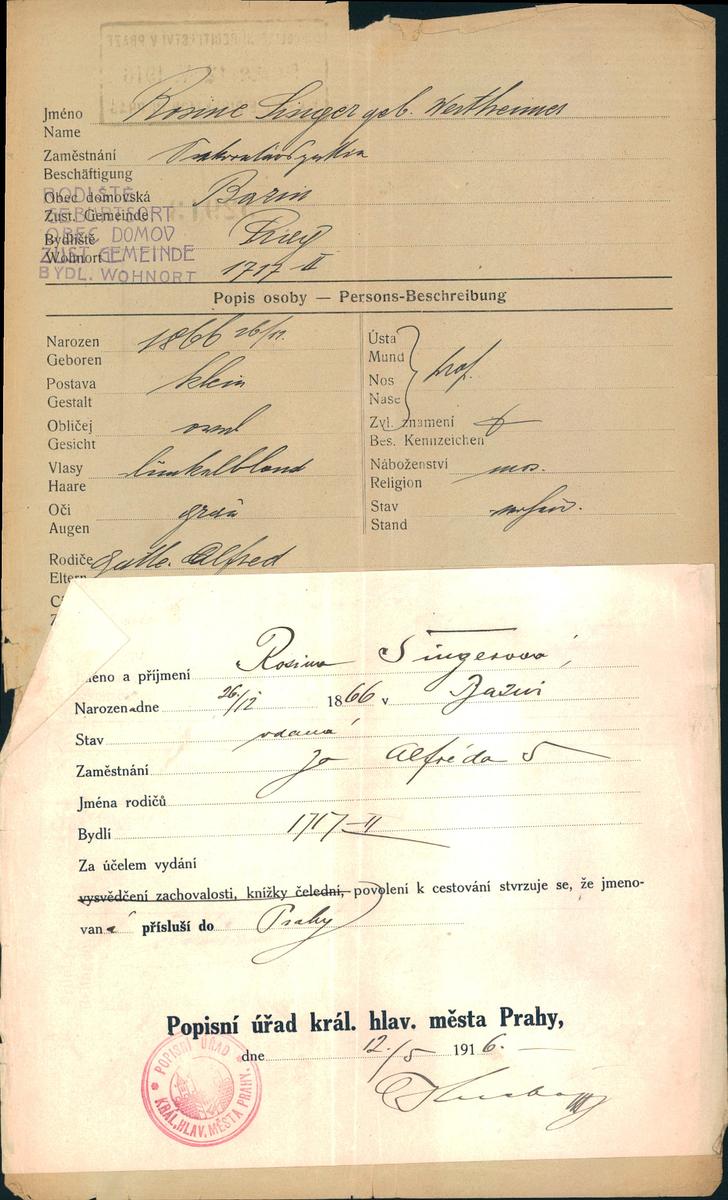 Jméno Rosine Singer geb. Wertheimer
Name
Zaměstnání
Beschäftigung
Obec domovská
Zust. Gemeinde
Bydliště Prag
Wohnort 1717-II
RODIŠTĚ
GEBURTSORT
OBEC DOMOV
ZUST. GEMEINDE
BYDL. WOHNORT
Popis osoby — Persons-Beschreibung
Narozen 1866 26/
Geboren
Postava klein
Gestalt
Obličej oval
Gesicht
Vlasy dunkelblond
Haare
Oči grau
Augen
Rodiče Alfred
Eltern
Ústa
Mund
Nos
Nase
Zvl. znamení
Bes. Kennzeichen
Náboženství mos.
Religion
Stav
Stand
Jméno a příjmení Rosina Singerová
Narozena dne 26/12 1866 v
Stav vdaná
Zaměstnání Alfréda S
Jména rodičů
Bydlí 1717-II
Za účelem vydání
vysvědčení zachovalosti, knížky čeledni, povolení k cestování stvrzuje se, že jmeno-
vaná přísluší do Prahy
Popisní úřad král. hlav. města Prahy,
dne 12./5 1916.
POPISNÍ ÚŘAD
KRÁL. HLAV. MĚSTA PRAHY.